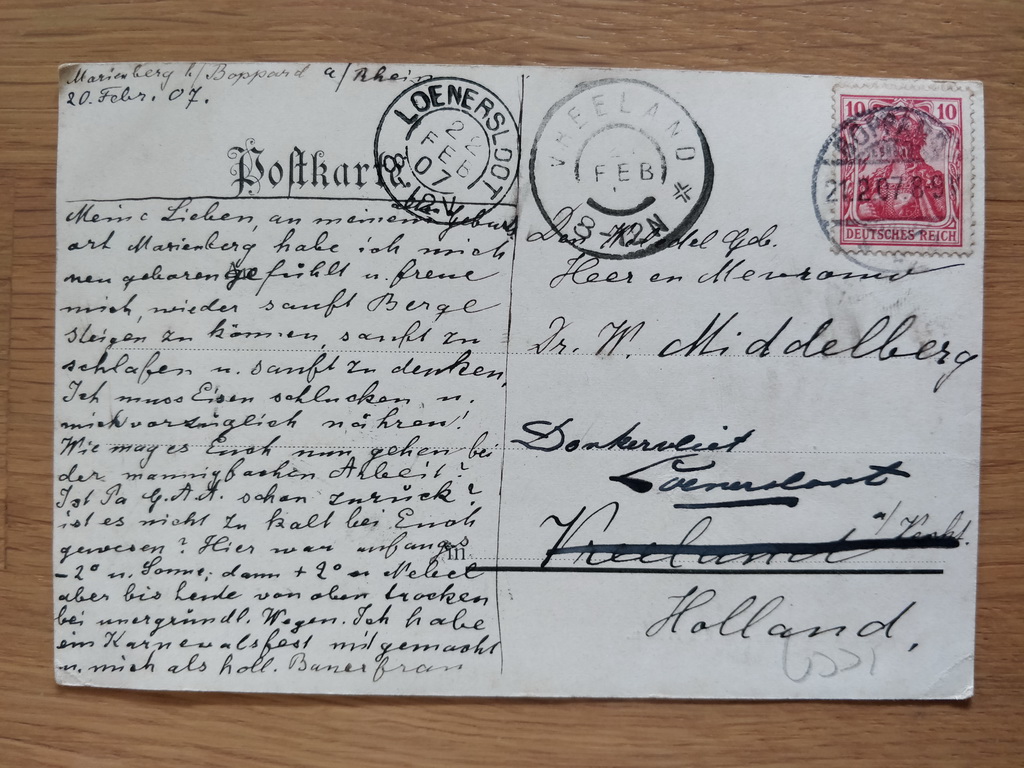 Marienberg b/ Boppard a/ Rhein
20. Febr. 07.
Postkarte
Meine Lieben, an meinem Geburts
ort Marienberg habe ich mich
neu geboren gefühlt u. freue
mich, wieder sanft Berge
steigen zu können, sanft zu
schlafen u. sanft zu denken,
Ich muss Eisen schlucken u.
mich vorzüglich nähren!
Wie mag es Euch nun gehen bei
der mannigfachen Arbeit?
Ist Pa G.A.A. schon zurück?
ist es nicht zu kalt bei Euch
gewesen? Hier war anfangs
-2° u. Sonne; dann +2° u Nebel
aber bis heute von oben trocken
bei unergründl. Wegen. Ich habe
ein Karnevalsfest mitgemacht
u. mich als holl. Bauerfrau
LOENERSLOOT
22
FEB
07
8-12V
VREELAND
FEB
8-12N
10 10
DEUTSCHES REICH
BOPPARD
21.2.07 8-9
Den Geb.
Heer en Mevrouw
Dr. W. Middelberg
Donkervliet
Loenersloot
in
Vreeland a/ Vecht.
Holland,